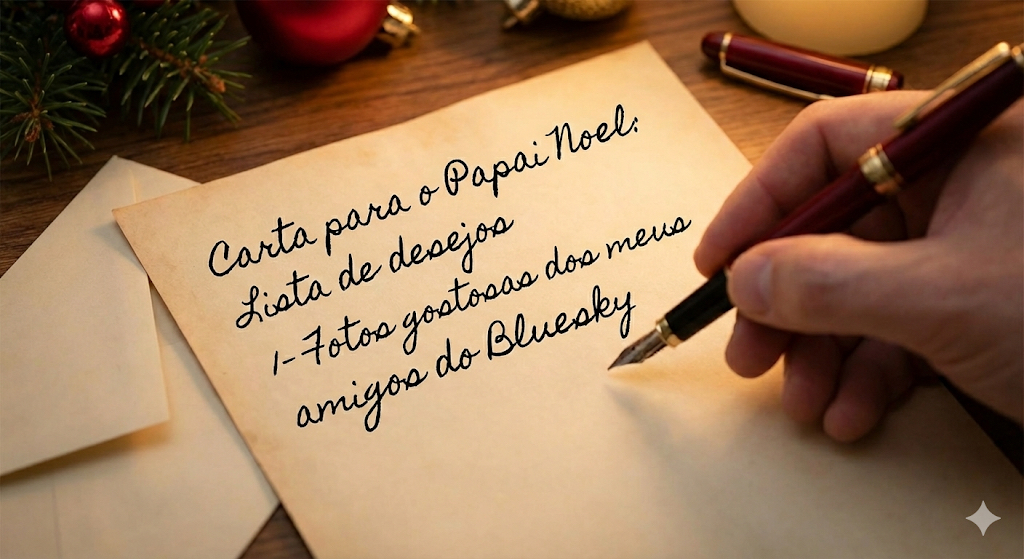 Carta para o Papai Noel:
Lista de desejos
1-Fotos gostosas dos meus
amigos do Bluesky